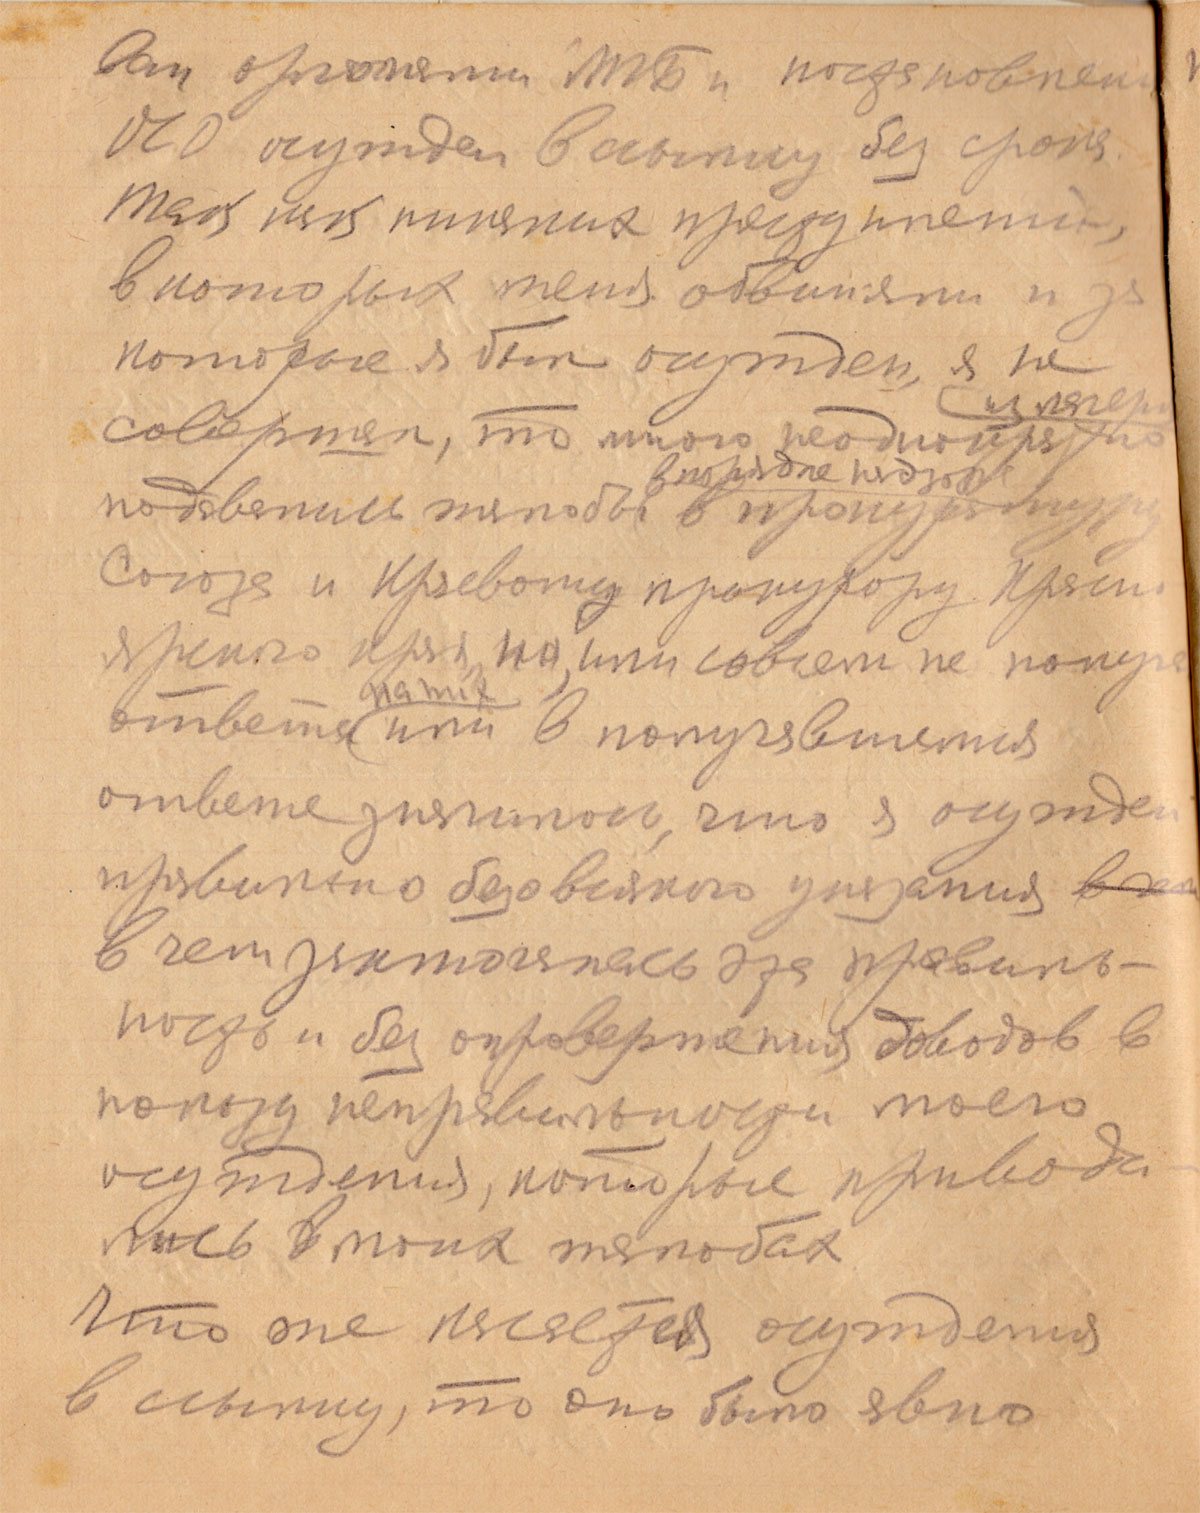 органами МГБ и постановлени
ОСО осужден в ссылку без срока.
Так как никаких преступлений,
в которых меня обвиняли и за
которые я был осужден, я не
совершал, то мною неоднократно
из лагеря
подавались жалобы в прокуратуру
в порядке надзора
Союза и Краевому прокурору Красно
ярского края, но, или совсем не получа
ответа или в получавшемся
на них
ответе значилось, что я осужден
правильно безовсякого указания
в чем заключалась эта правиль-
ность и без опровержения доводов в
пользу неправильности моего
осуждения, которые приводи-
лись в моих жалобах
Что же касается осуждения
в ссылку, то оно было явно